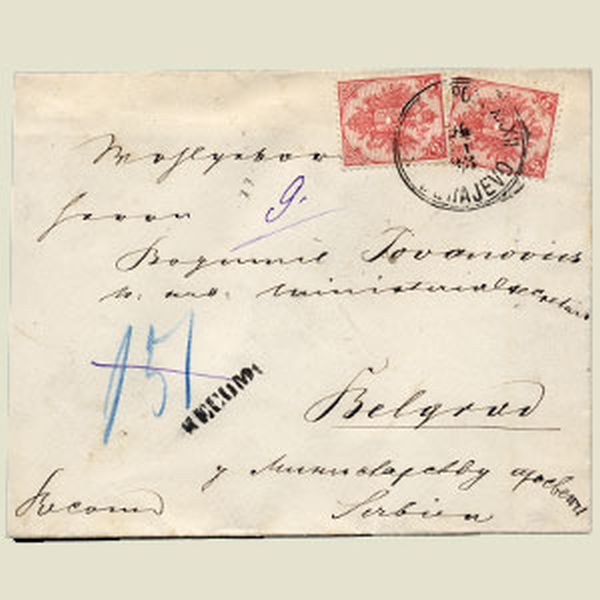 SARAJEVO
Wohlgeboren
9.
Herrn
Bogumil Jovanovics
Ministerialsecretär
151
RECOM
Belgrad
у Министарству просвете
Recom
Serbien